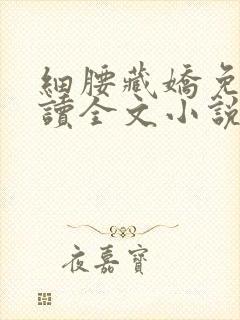 細腰藏嬌免
讀全文小說
夜嘉寶